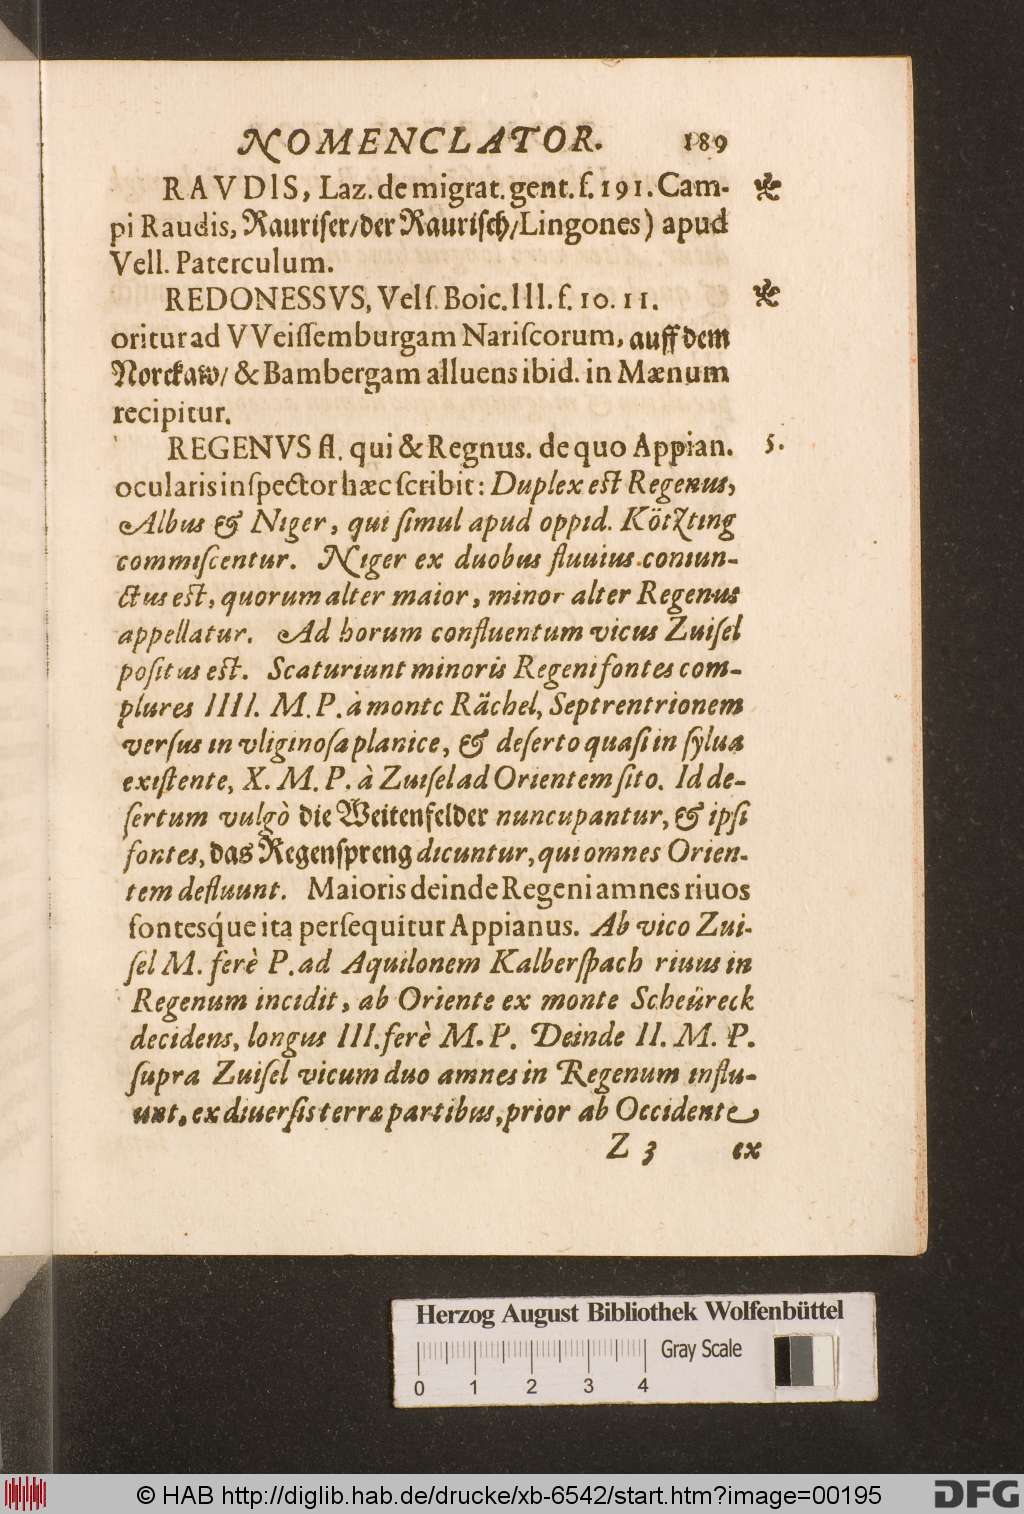 NOMENCLATOR. 189
RAVDIS, Laz. de migrat. gent. f. 191. Cam-
pi Raudis, Rauriſer/der Rauriſch/Lingones) apud
Vell. Paterculum.
REDONESSVS, Velſ. Boic. III. f. 10. 11.
oritur ad VVeiſſemburgam Nariſcorum, auff dem
Norckaw/ & Bambergam alluens ibid. in Mænum
recipitur.
REGENVS fl. qui & Regnus. de quo Appian. 5.
ocularis inſpector hæc ſcribit: Duplex eſt Regenus,
Albus & Niger, qui ſimul apud oppid. Kötzting
commiſcentur. Niger ex duobus fluuius coniun-
ctus eſt, quorum alter maior, minor alter Regenus
appellatur. Ad horum confluentum vicus Zuiſel
poſitus eſt. Scaturiunt minoris Regeni fontes com-
plures IIII. M. P. à monte Rächel, Septrentrionem
verſus in vliginoſa planice, & deſerto quaſi in ſylua
exiſtente, X. M. P. à Zuiſel ad Orientem ſito. Id de-
ſertum vulgò die Weitenfelder nuncupantur, & ipſi
fontes, das Regenſpreng dicuntur, qui omnes Orien-
tem defluunt. Maioris deinde Regeni amnes riuos
fontesq́ue ita perſequitur Appianus. Ab vico Zui-
ſel M. ferè P. ad Aquilonem Kalberſpach riuus in
Regenum incidit, ab Oriente ex monte Scheüreck
decidens, longus III. ferè M. P. Deinde II. M. P.
ſupra Zuiſel vicum duo amnes in Regenum influ-
unt, ex diuerſis terræ partibus, prior ab Occidente
Z 3 ex
Herzog August Bibliothek Wolfenbüttel
Gray Scale
0 1 2 3 4
© HAB http://diglib.hab.de/drucke/xb-6542/start.htm?image=00195
DFG